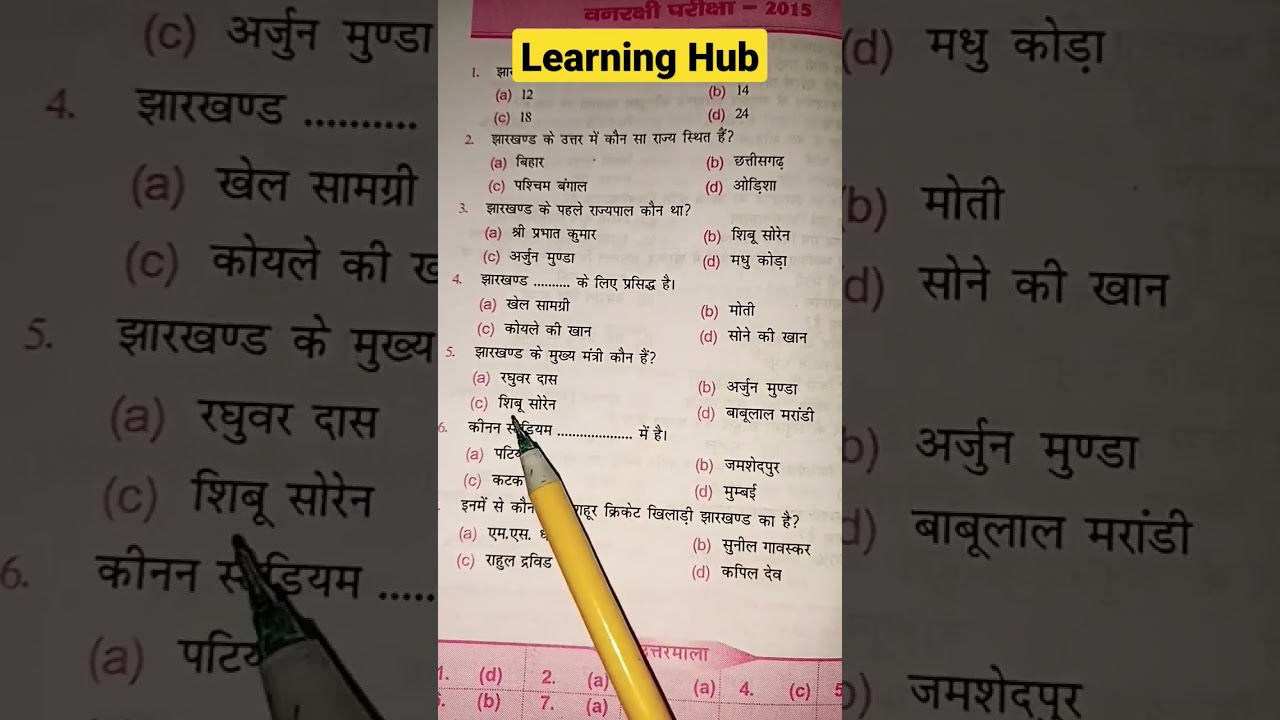 वनरक्षी परीक्षा – 2015
Learning Hub
1.
(a) 12 (b) 14
(c) 18 (d) 24
2. झारखण्ड के उत्तर में कौन सा राज्य स्थित हैं?
(a) बिहार (b) छत्तीसगढ़
(c) पश्चिम बंगाल (d) ओड़िशा
3. झारखण्ड के पहले राज्यपाल कौन था?
(a) श्री प्रभात कुमार (b) शिबू सोरेन
(c) अर्जुन मुण्डा (d) मधु कोड़ा
4. झारखण्ड .......... के लिए प्रसिद्ध है।
(a) खेल सामग्री (b) मोती
(c) कोयले की खान (d) सोने की खान
5. झारखण्ड के मुख्य मंत्री कौन हैं?
(a) रघुवर दास (b) अर्जुन मुण्डा
(c) शिबू सोरेन (d) बाबूलाल मरांडी
6. कीनन .................... में है।
(a) (b) जमशेदपुर
(c) कटक (d) मुम्बई
इनमें से कौन क्रिकेट खिलाड़ी झारखण्ड का है?
(a) एम.एस. (b) सुनील गावस्कर
(c) राहुल द्रविड (d) कपिल देव
उत्तरमाला
1. (d) 2. (a) (a) 4. (c) 5
(b) 7. (a)
(c) अर्जुन मुण्डा
4. झारखण्ड ..........
(a) खेल सामग्री
(c) कोयले की
5. झारखण्ड के मुख्य
(a) रघुवर दास
(c) शिबू सोरेन
6. कीनन .....
(a)
(d) मधु कोड़ा
b) मोती
d) सोने की खान
b) अर्जुन मुण्डा
d) बाबूलाल मरांडी
) जमशेदपुर